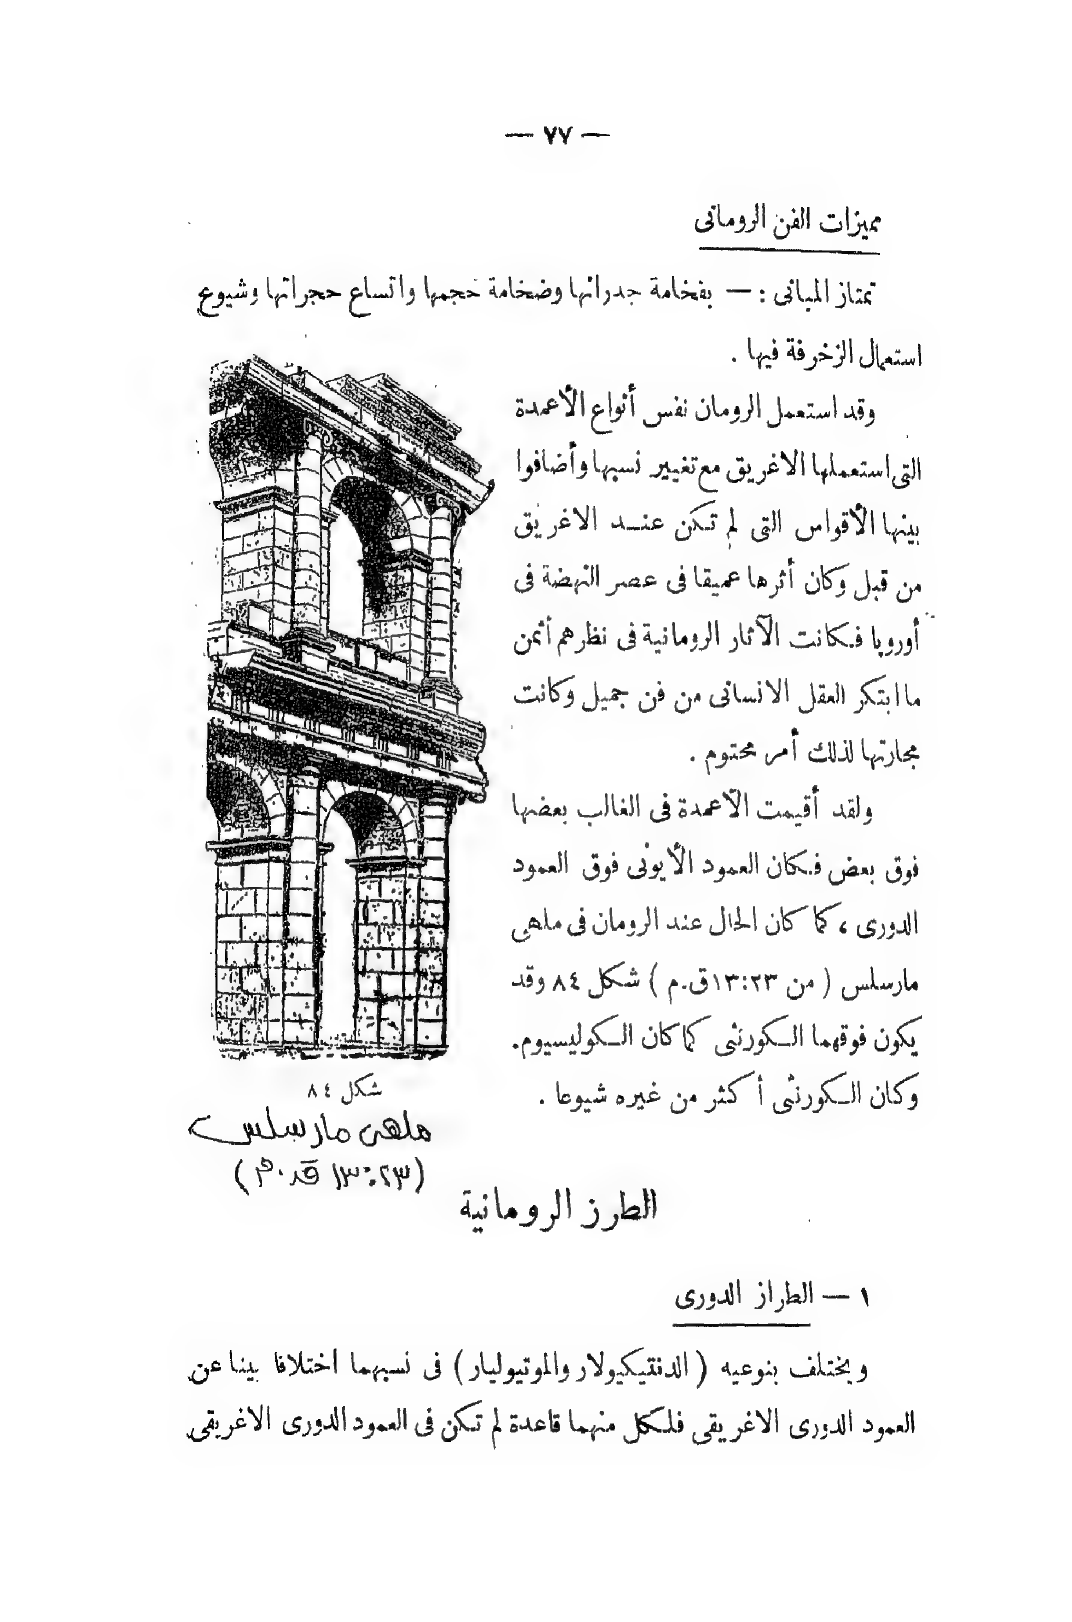 — ٧٧ —
مميزات الفن الرومانى
تمتاز المبانى : — بفخامة جدرانها وضخامة حجمها واتساع حجراتها وشيوع
استعمال الزخرفة فيها .
وقد استعمل الرومان نفس أنواع الأعمدة
التى استعملها الاغريق مع تغيير نسبها وأضافوا
بينها الأقواس التى لم تكن عند الاغريق
من قبل وكان أثرها عميقا فى عصر النهضة فى
أوروپا فكانت الآثار الرومانية فى نظرهم أثمن
ما ابتكر العقل الانسانى من فن جميل وكانت
مجارتها لذلك أمر محتوم .
ولقد أقيمت الآعمدة فى الغالب بعضها
فوق بعض فكان العمود الأيونى فوق العمود
الدورى ، كما كان الحال عند الرومان فى ملهى
مارسلس ( من ٢٣:١٣ ق.م ) شكل ٨٤ وقد
يكون فوقهما الكورنثى كما كان الكوليسيوم.
وكان الكورنثى أكثر من غيره شيوعا .
شكل ٨٤
ملهى مارسلس
(٢٣:١٣ ق.م)
الطرز الرومانية
١ — الطراز الدورى
ويختلف بنوعيه ( الدنتيكيولار والموتيوليار ) فى نسبهما اختلافا بينا عن
العمود الدورى الاغريقى فلكل منهما قاعدة لم تكن فى العمود الدورى الاغريقى